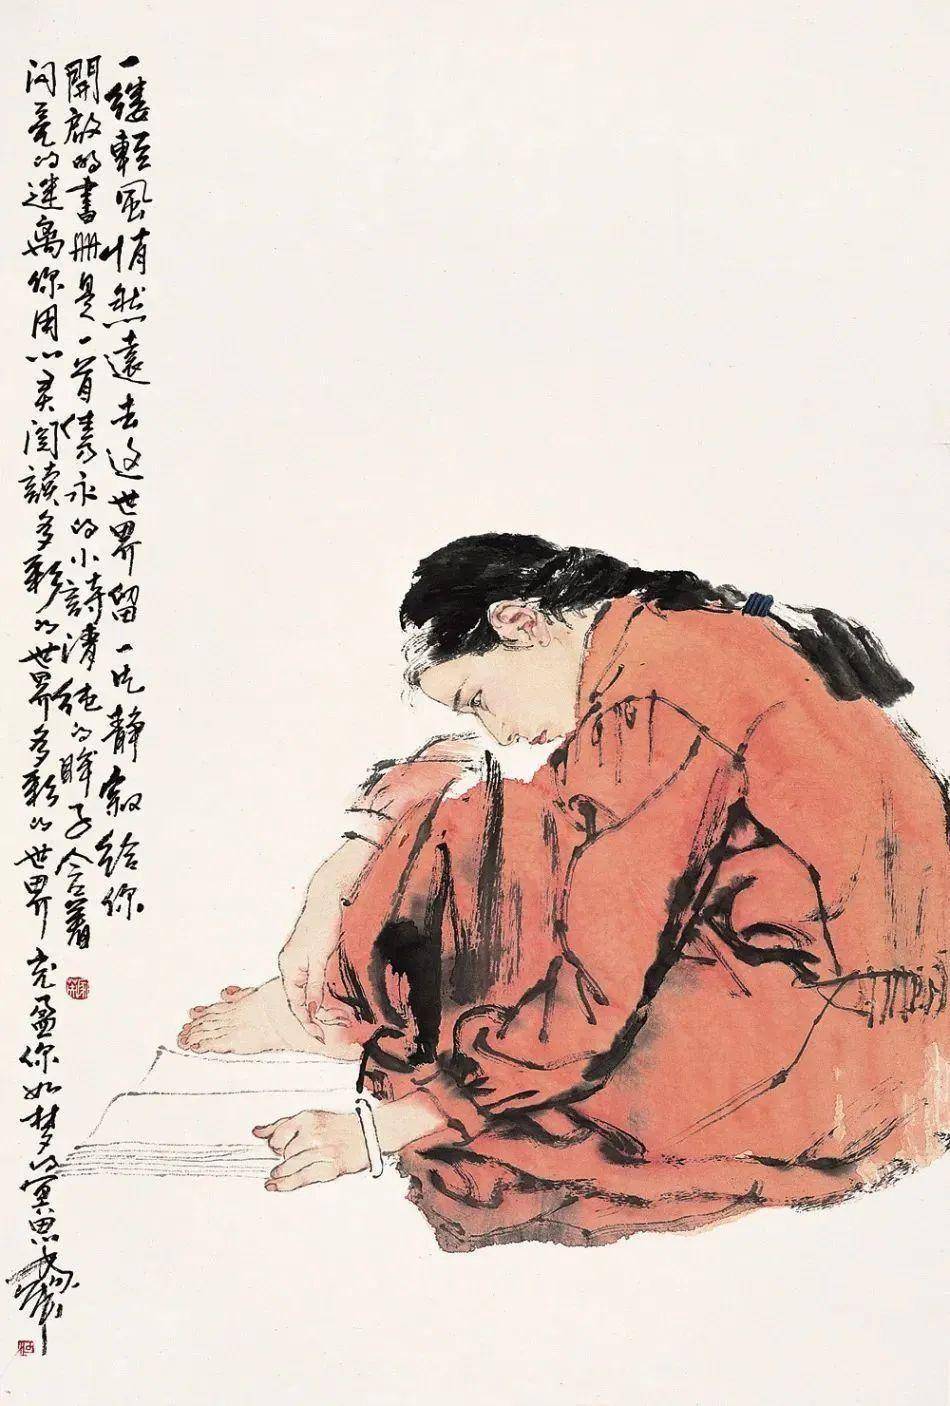 一缕輕風悄然遠去这世界留一片静寂给你
開啟的書册是一首隽永的小詩清纯的眸子含着
闪亮的迷离你用心灵阅讀多彩的世界多彩的世界充盈你如梦的冥思